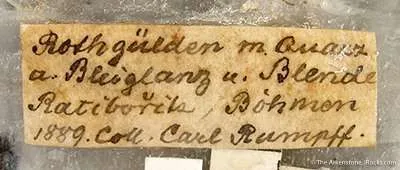 Rothgülden m. Quarz
u. Bleiglanz u. Blende
Ratibořitz, Böhmen
1889. Coll. Carl Rumpff.
© The Arkenstone, iRocks.com